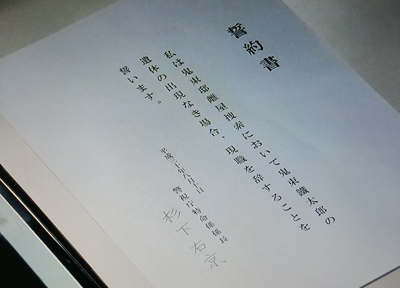 誓約書
私は鬼束邸離屋捜索において鬼束鐵太郎の
遺体の出現なき場合、現職を辞することを
誓います。
警視庁特命係係長
杉下右京